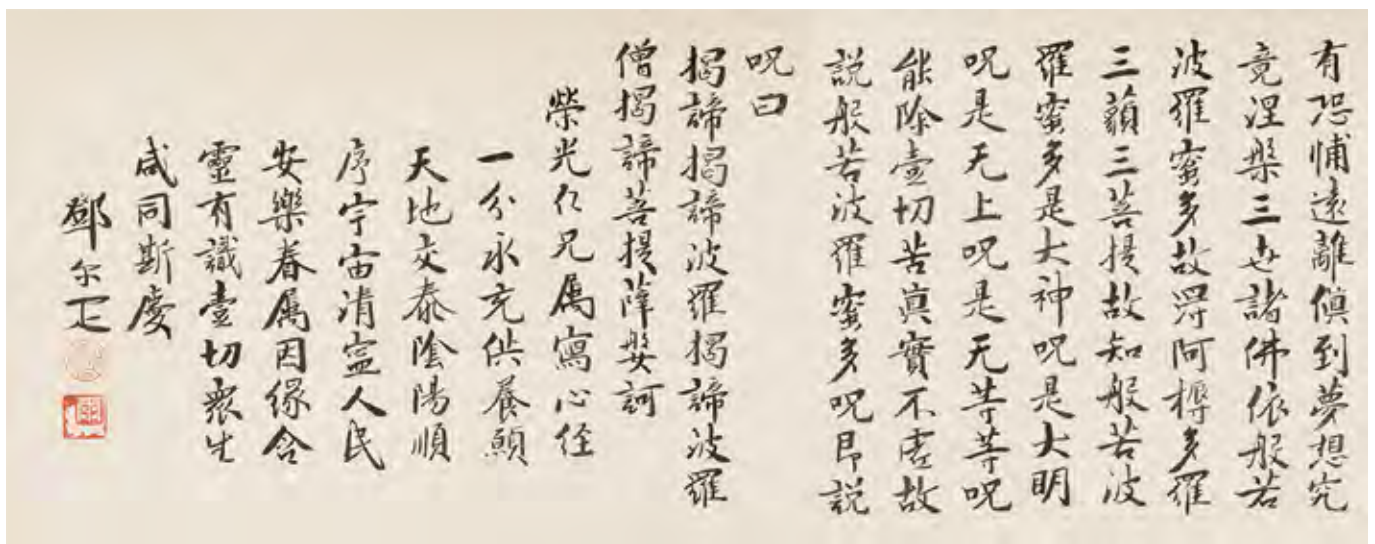 有恐怖遠離傎到夢想究
竟涅槃三世諸佛依般若
波羅蜜多故得阿耨多羅
三藐三菩提故知般若波
羅蜜多是大神呪是大明
呪是无上呪是无等等呪
能除壹切苦真實不虛故
説般若波羅蜜多呪即説
呪曰
揭諦揭諦波羅揭諦波羅
僧揭諦菩提薩婆訶
榮光仁兄属寫心経
一分永充供養願
天地交泰陰陽順
序宇宙清寍人民
安樂眷属因緣含
靈有識壹切衆生
咸同斯慶
鄧尔疋